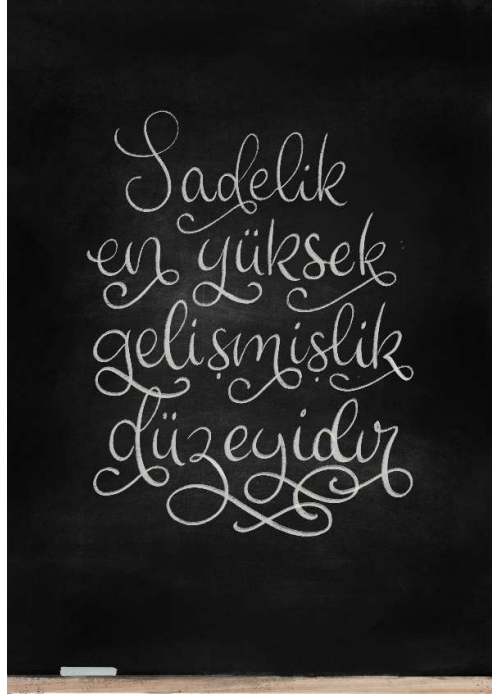 Sadelik
en yüksek
gelişmişlik
düzeyidir